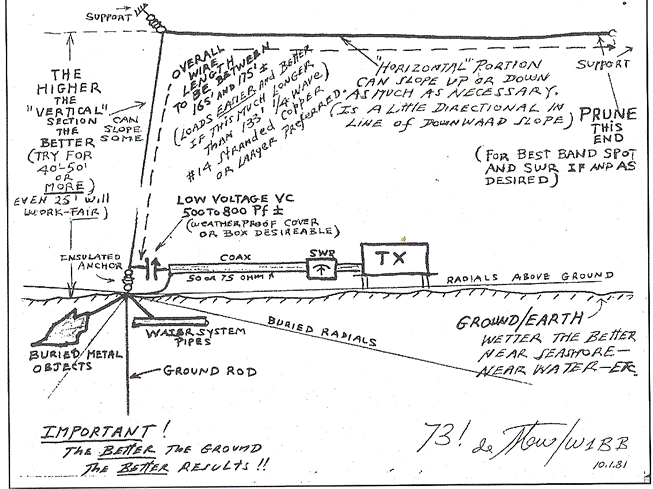 SUPPORT
OVERALL
WIRE
LENGTH
TO BE BETWEEN
165' AND 175' ±
(LOADS EASIER AND BETTER
IF THIS MUCH LONGER
THAN 133' 1/4 WAVE)
#14 STRANDED COPPER
OR LARGER PREFERRED.
"HORIZONTAL" PORTION
CAN SLOPE UP OR DOWN
AS MUCH AS NECESSARY.
(IS A LITTLE DIRECTIONAL IN
LINE OF DOWNWARD SLOPE)
SUPPORT
PRUNE
THIS
END
(FOR BEST BAND SPOT
AND SWR IF AND AS
DESIRED)
THE
HIGHER
THE
"VERTICAL"
SECTION
THE
BETTER
(TRY FOR
40'-50'
OR
MORE)
EVEN 25' WILL
WORK-FAIR)
CAN
SLOPE
SOME
LOW VOLTAGE VC
500 TO 800 Pf ±
(WEATHERPROOF COVER
OR BOX DESIREABLE)
INSULATED
ANCHOR
COAX
50 OR 75 OHM
SWR
TX
RADIALS ABOVE GROUND
BURIED RADIALS
GROUND/EARTH
WETTER THE BETTER
NEAR SEASHORE—
NEAR WATER—ETC.
BURIED METAL
OBJECTS
WATER SYSTEM
PIPES
GROUND ROD
IMPORTANT!
THE BETTER THE GROUND
THE BETTER RESULTS!!
73! de Stew/W1BB
10.1.81